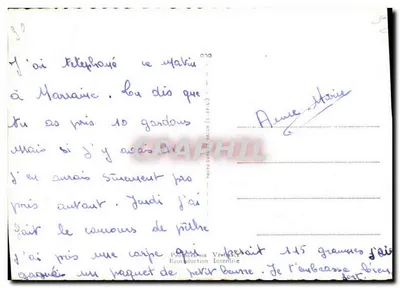 J'ai telephoné ce matin
à Marraine. Lu dès que
tu as pris 10 gardons
mais si j'y avais été
j'en aurais sûrement pro
pris autant. Jeudi j'ai
fait le concours de pêche
j'ai pris une carpe qui pesait 115 grammes j'ai
gagné un paquet de petit beurre. Je t'embrasse bien
fort.
Anne-Marie
CARPHIL
Reproduction Interdite